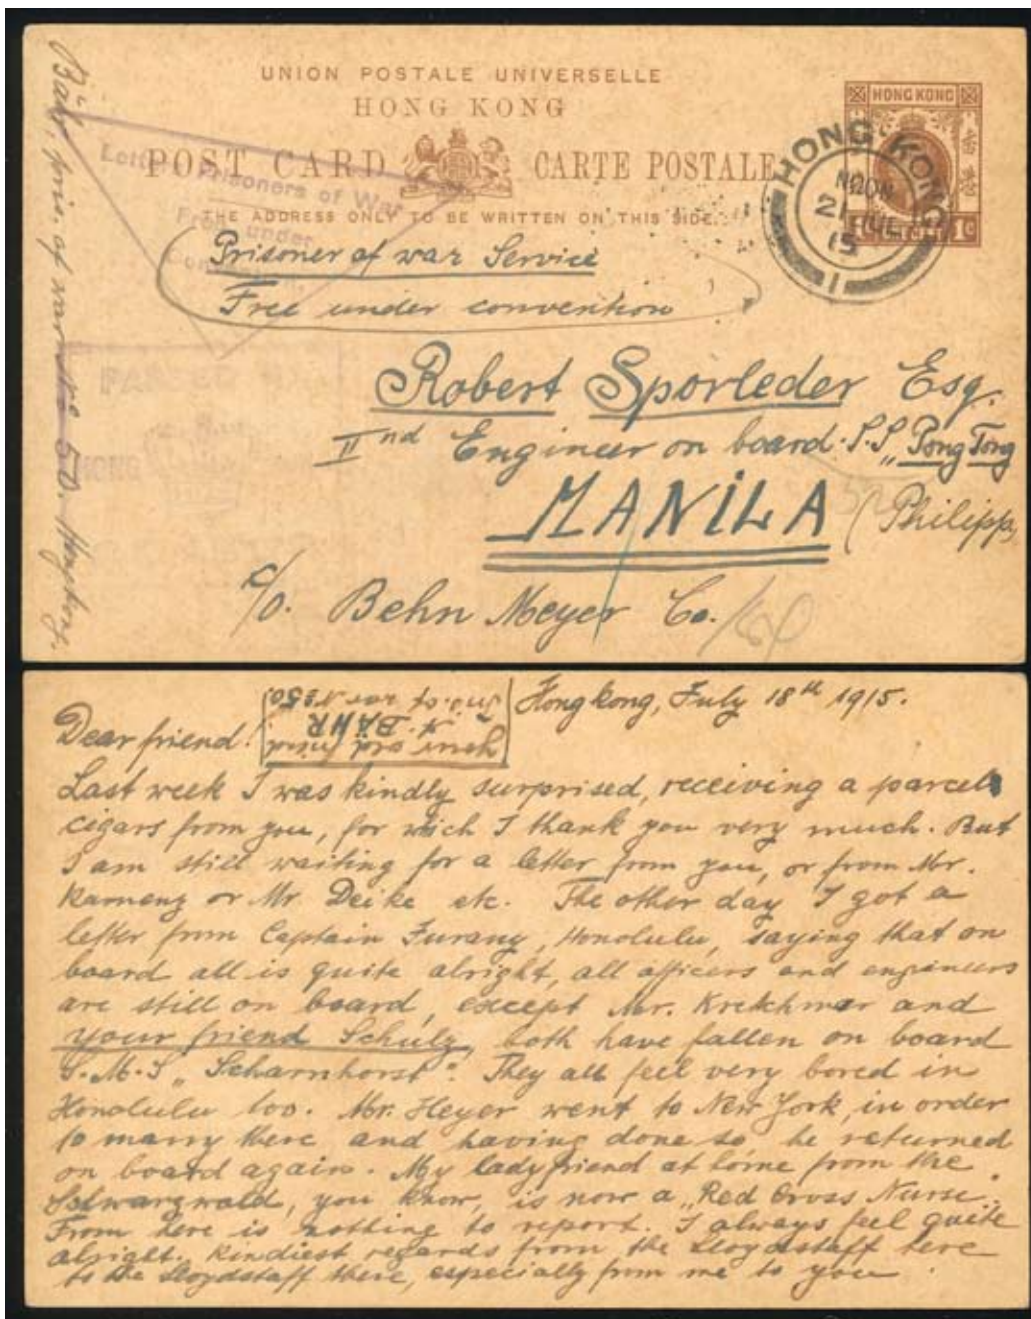 UNION POSTALE UNIVERSELLE
HONG KONG
POST CARD CARTE POSTALE
THE ADDRESS ONLY TO BE WRITTEN ON THIS SIDE.
HONG KONG
香港
1c
HONG KONG
NOON
21 JUL
15
1
Letter Prisoners of War
Free under
Convention.
Prisoner of war Service
Free under convention
Robert Sporleder Esq.
IInd Engineer on board S.S. „Pong Tong
MANiLA (Philipp.
c/o. Behn Meyer Co.
PASSED
HONG
Bähr, pris. of war No 50. Hongkong.
Hongkong, July 18th 1915.
Dear friend!
your old friend
BÄHR
of war No 50.
Last week I was kindly surprised, receiving a parcel
cigars from you, for which I thank you very much. But
I am still waiting for a letter from you, or from Mr.
Kamenz or Mr. Deike etc. The other day I got a
letter from Captain Furang, Honolulu, saying that on
board all is quite alright, all officers and engineers
are still on board, except Mr. Kretchmar and
your friend Schulz, both have fallen on board
S.M.S „Scharnhorst". They all feel very bored in
Honolulu too. Mr. Heyer went to New York, in order
to marry there, and having done so he returned
on board again. My ladyfriend at home from the
Schwarzwald, you know, is now a „Red Cross Nurse".
From here is nothing to report. I always feel quite
alright. Kindiest regards from the Lloydstaff here
to the Lloydstaff there, especially from me to you.